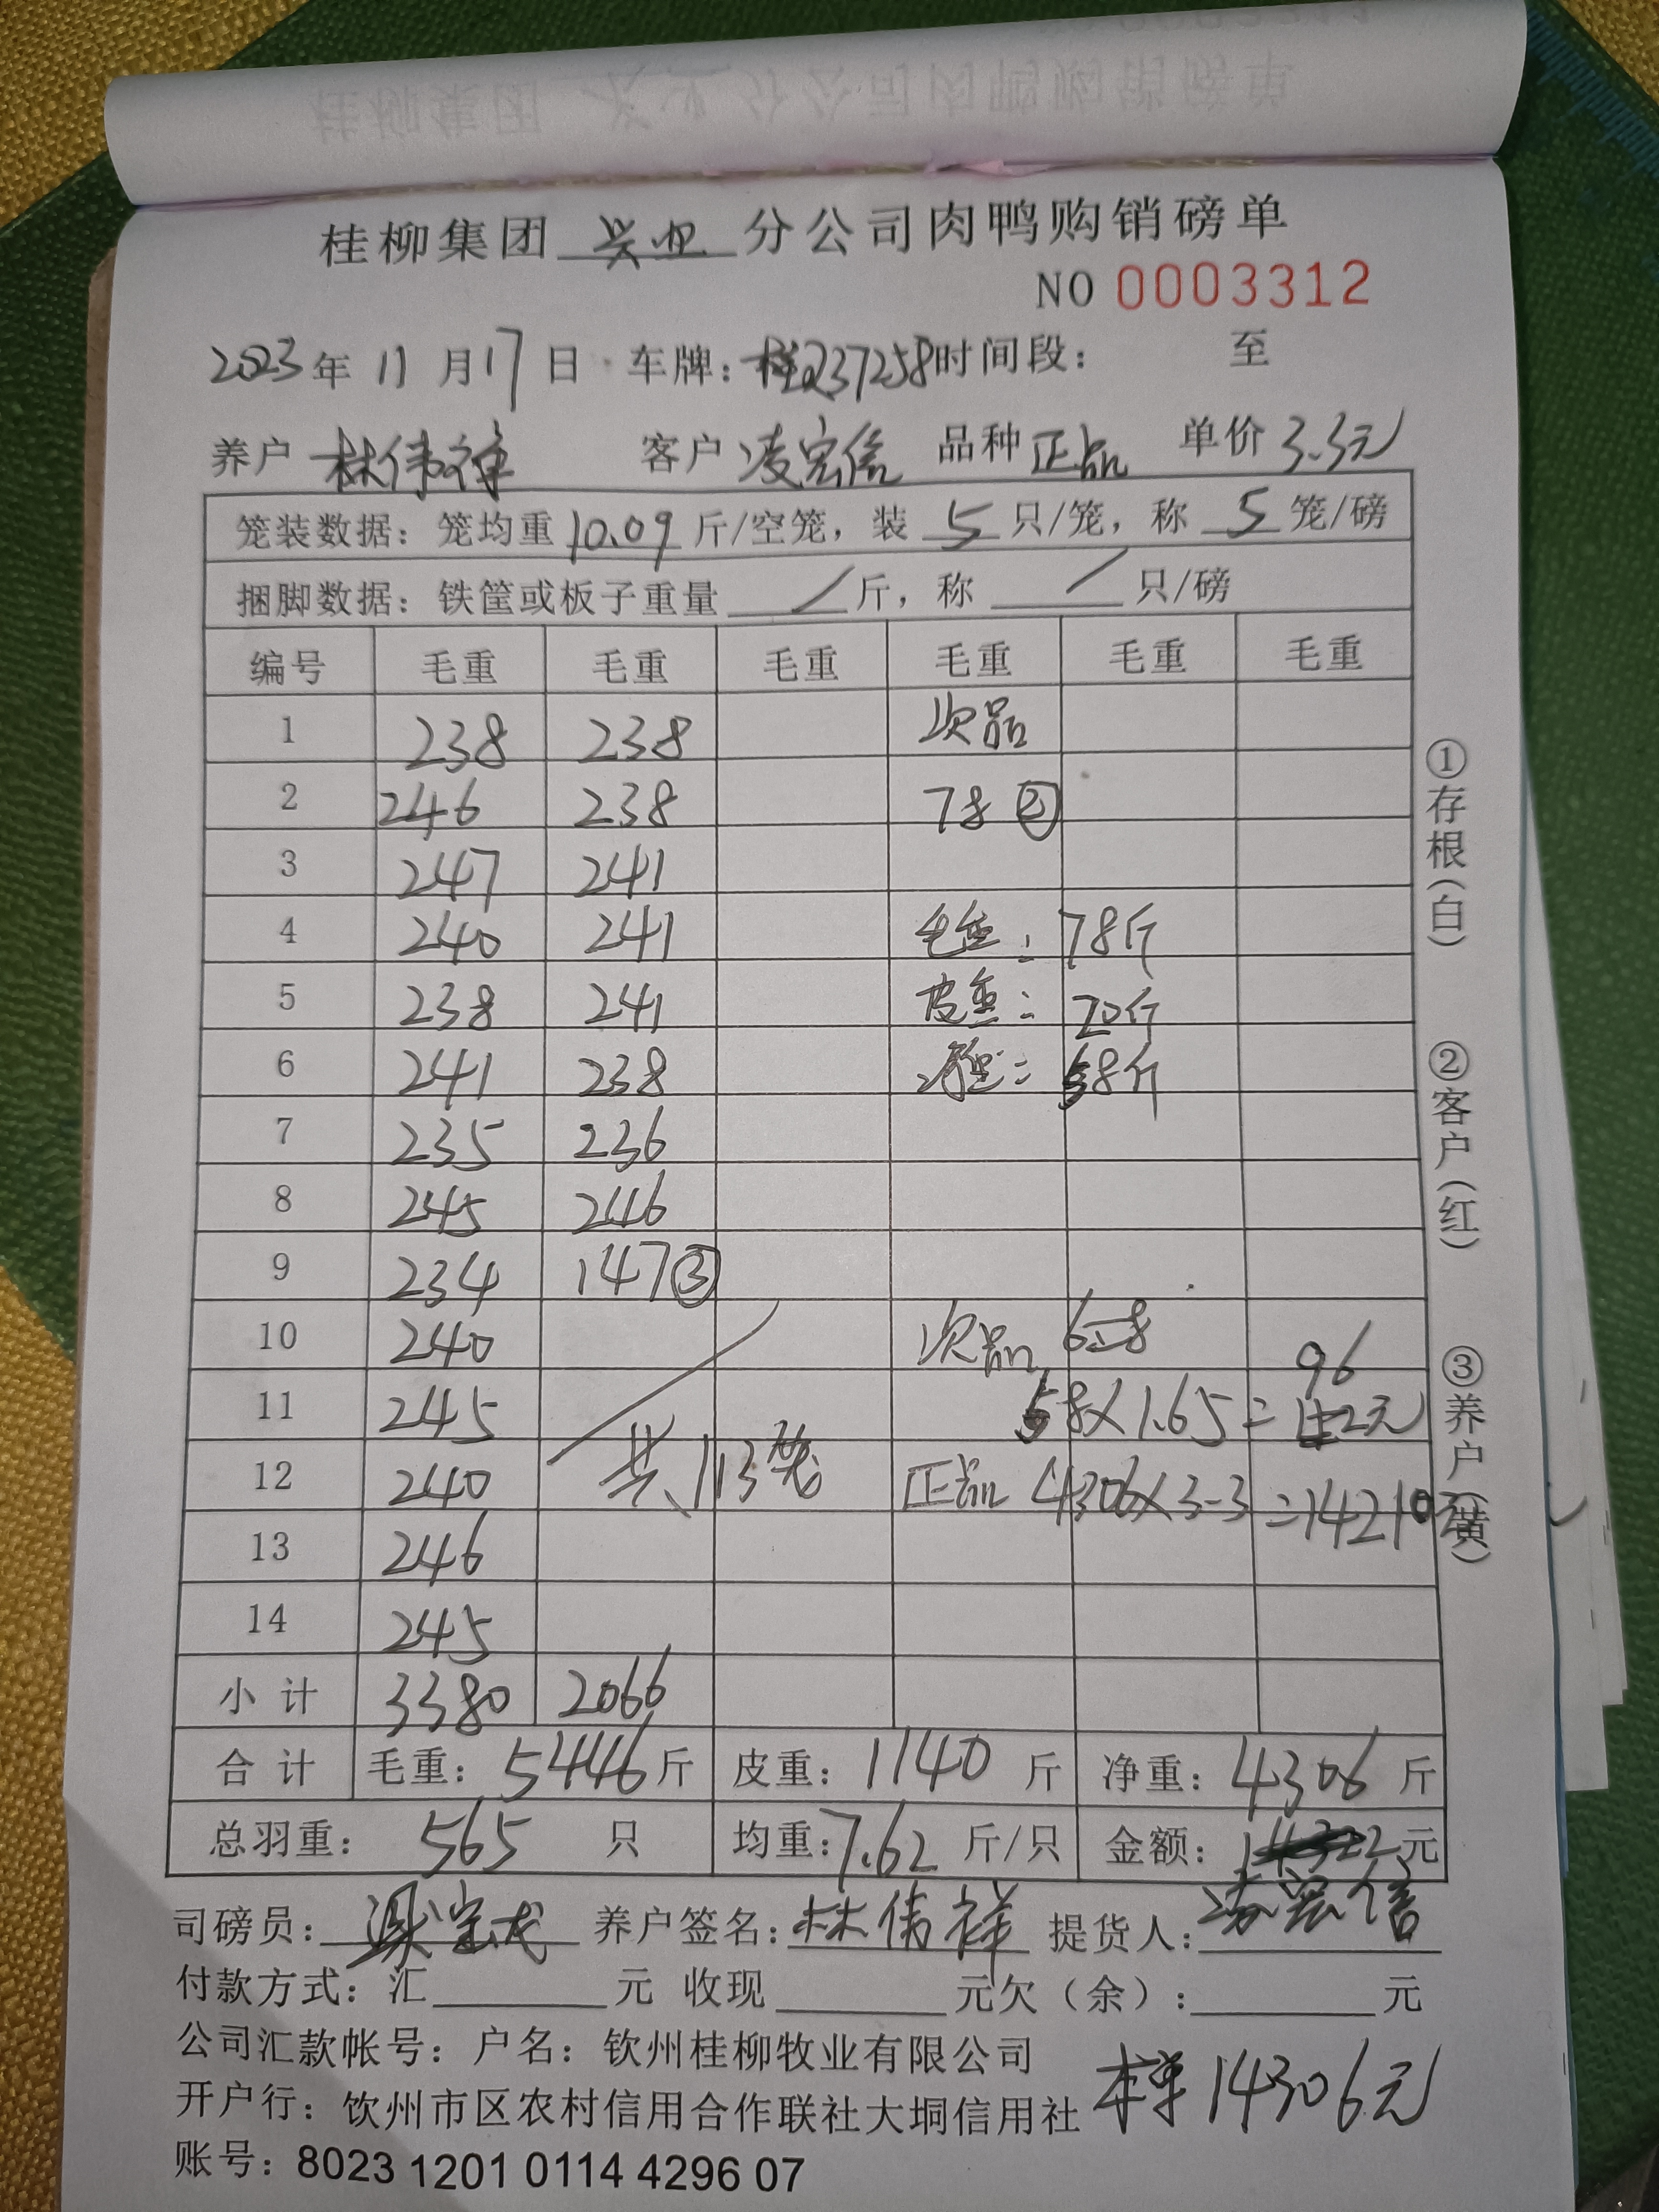 桂柳集团 兴业 分公司肉鸭购销磅单
NO 0003312
2023年 11月17日 车牌：桂Q37258 时间段： 至
养户 林伟祥 客户 凌宏信 品种 正品 单价 3.3元
笼装数据：笼均重 10.09 斤/空笼，装 5 只/笼，称 5 笼/磅
捆脚数据：铁筐或板子重量 / 斤，称 / 只/磅
编号 毛重 毛重 毛重 毛重 毛重 毛重
1 238 238 次品
2 246 238 78②
3 247 241
4 240 241 毛重：78斤
5 238 241 皮重：20斤
6 241 238 净重：58斤
7 235 236
8 245 246
9 234 147③
10 240 次品
11 245 58×1.65=96元
12 240 共113笼 正品 4306×3.3=14210元
13 246
14 245
小计 3380 2066
合计 毛重：5446斤 皮重：1140斤 净重：4306斤
总羽重：565 只 均重：7.62 斤/只 金额： 元
司磅员： 养户签名：林伟祥 提货人：凌宏信
付款方式：汇 元 收现 元欠（余）： 元
公司汇款帐号：户名：钦州桂柳牧业有限公司
开户行：钦州市区农村信用合作联社大垌信用社 本单14306元
账号：8023 1201 0114 4296 07
①存根（白）
②客户（红）
③养户（黄）